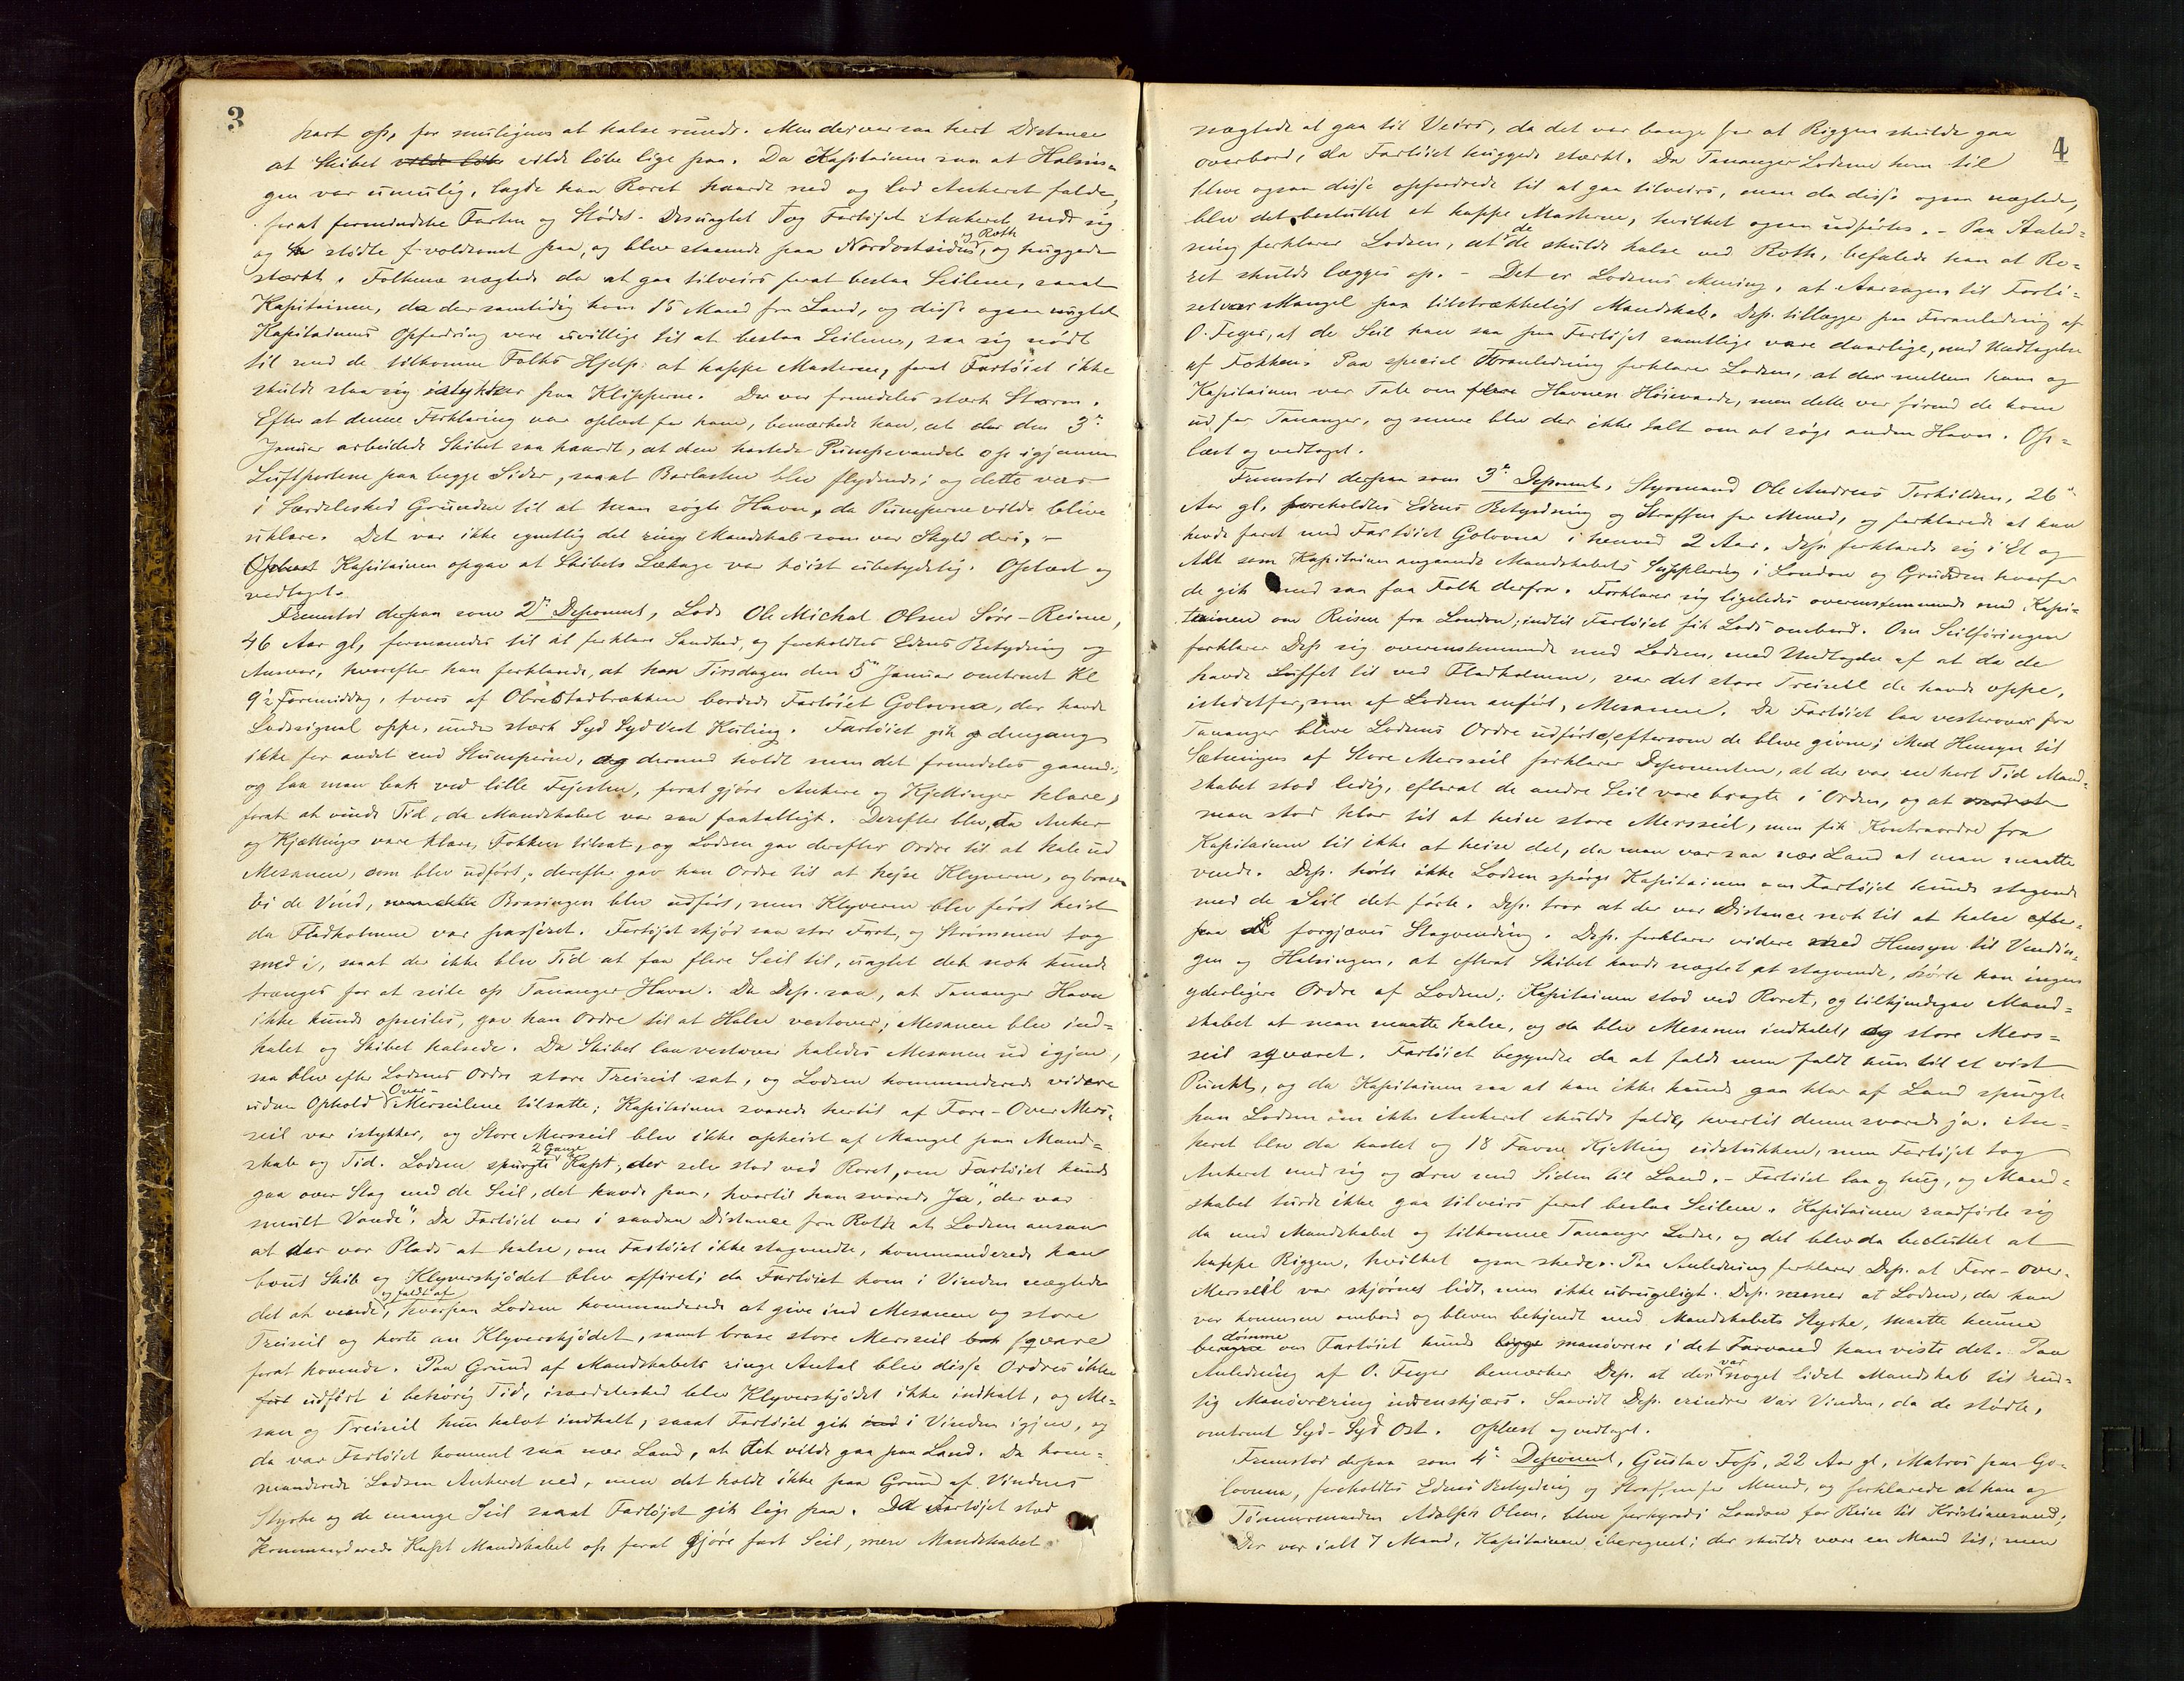 3
hart op, for muligens at halse rundt. Men der var saa kort Distance
at Skibet vilde løbe vilde løbe lige paa. Da Kapitainen saa at Halsin-
gen var umulig, lagde han Roret haardt ned og lod Ankeret falde,
forat formindske Farten og Stødet. Desuagtet tog Fartøjet Ankeret med sig
og stødte voldsomt paa, og blev staaende paa Nordostsiden af Roth, og huggede
stærkt. Folkene nægtede da at gaa tilveirs forat beslaa Seilene, samt
Kapitainen, da der samtidig kom 15 Mand fra Land, og disse ogsaa uagtet
Kapitainens Opfordring vare uvillige til at beslaa Seilene, saa sig nødt
til med de tilkomne Folks Hjelp at kappe Masterne, forat Fartøiet ikke
skulde slaa sig istykker paa Klipperne. Der var fremdeles stærk Storm.
Efter at denne Forklaring var oplæst for ham, bemærkede han, at der den 3die
Januar arbeidede Skibet saa haardt, at den kastede Pumpevandet op igjennem
Luftportene paa begge Sider, saaat Barlasten blev flydende; og dette var
i Særdeleshed Grunden til at man søgte Havn, da Pumperne vilde blive
uklare. Det var ikke egentlig det ringe Mandskab som var Skyld deri. -
Oplæst Kapitainen opgav at Skibets Lækage var høist ubetydelig. Oplæst og
vedtaget.
Fremstod derpaa som 2den Deponent, Lods Ole Michal Olsen Søre-Reime,
46 Aar gl, formanedes til at forklare Sandhed, og foreholdtes Edens Betydning og
Ansvar, hvorefter han forklarede, at han Tirsdagen den 5te Januar omtrent Kl
9½ Formiddag, tvers af Obrestadbrækken bordede Fartøiet Golovna, der havde
Lodssignal oppe, under stærk Syd Syd Vest Kuling. Fartøiet gik dengang
ikke for andet end Stumperne, og dermed holdt man det fremdeles gaaende,
og laa man bak ved lille Fejesten, forat gjøre Ankere og Kjettinger klare,
forat at vinde Tid, da Mandskabet var saa faatalligt. Derefter blev, da Anker
og Kjættinger vare klare, Fokken tilsat, og Lodsen gav derefter Ordre til at hale ud
Mesanen, som blev udført; derefter gav han Ordre til at hejse Klyveren, og brase
bi de Vind, Brasingen blev udført, men Klyveren blev først heist
da Fladholmene var passeret. Fartøjet skjød saa stor Fart, og Strømmen tog
med i, saaat der ikke blev Tid at faa flere Seil til, uagtet det nok kunde
trænges for at seile op Tananger Havn. Da Dep. saa, at Tananger Havn
ikke kunde opseiles, gav han Ordre til at Halse vestover; Mesanen blev ind-
halet og Skibet halsede. Da Skibet laa vestover haledes Mesanen ud igjen,
saa blev efter Lodsens Ordre store Treiseil sat, og Lodsen kommanderede videre
uden Ophold Over-Merseilene tilsatte; Kapitainen svarede hertil at Fore-Over Mers-
seil var istykker, og Store Mersseil blev ikke opheist af Mangel paa Mand-
skab og Tid. Lodsen spurgte 2 Gange Kapt, der selv stod ved Roret, om Fartøiet kunde
gaa over Stag med de Seil, det havde paa, hvortil han svarede "Ja, der var
smult Vande". Da Fartøiet var i saadan Distance fra Roth at Lodsen ansaa
at der var Plads at halse, om Fartøiet ikke stagvendte, kommanderede han
vend Skib og Klyverskjødet blev affiret; da Fartøiet kom i Vinden nægtede
det at vende, og faldt af hvorpaa Lodsen kommanderede at give ind Mesanen og store
Treiseil og korte an Klyverskjødet, samt brase store Mersseil bak sqvare
forat kovende. Paa Grund af Mandskabets ringe Antal blev disse Ordres ikke
først udført i behørig Tid, isærdeleshed blev Klyverskjødet ikke indhalt, og Me-
san og Treiseil kun halvt indhalt, saaat Fartøiet gik ind i Vinden igjen, og
da var Fartøiet kommet saa nær Land, at det vilde gaa paa Land. Da kom-
manderede Lodsen Ankeret ned, men det holdt ikke paa Grund af Vindens
Styrke og de mange Seil saaat Fartøjet gik lige paa. Da Fartøjet stod
kommanderede Kapt Mandskabet op forat gjøre fast Seil, men Mandskabet
4
nægtede at gaa til Veirs, da det var bange for at Riggen skulde gaa
overbord, da Fartøiet huggede stærkt. Da Tananger Lodsene kom til
bleve ogsaa disse opfordrede til at gaa tilveirs, men da disse ogsaa nægtede,
blev det besluttet at kappe Masterne, hvilket ogsaa udførtes. - Paa Anled-
ning forklarer Lodsen, at da de skulde halse ved Roth, befalede han at Ro-
ret skulde lægges op. - Det er Lodsens Mening, at Aarsagen til Forli-
set var Mangel paa tilstrækkeligt Mandskab. Dep. tillægger paa Foranledning af
O. Feyer, at de Seil han saa paa Fartøjet samtlige vare daarlige, med Undtagelse
af Fokken. Paa speciel Foranledning forklarer Lodsen, at der mellem ham og
Kapitainen var Tale om flere Havnen Høievarde, men dette var førend de kom
ud for Tananger, og senere blev der ikke talt om at søge anden Havn. Op-
læst og vedtaget.
Fremstod derpaa som 3die Deponent, Styrmand Ole Andreas Terkildsen, 26
Aar gl, foreholdtes Edens Betydning og Straffen for Mened, og forklarede at han
havde faret med Fartøiet Golovna i henved 2 Aar. Dep. forklarede sig i Et og
Alt som Kapitainen angaaende Mandskabets Supplering i London og Grunden hvorfor
de gik med saa faa Folk derfra. Forklarer sig ligeledes overensstemmende med Kapi-
tainen om Reisen fra London, indtil Fartøiet fik Lods ombord. Om Seilføringen
forklarer Dep sig overensstemmende med Lodsen, med Undtagelse af at da de
havde Luffet til ved Fladholmene, var det store Treiseil de havde oppe,
istedetfor, som af Lodsen anført, Mesanen. Da Fartøiet laa vesterover fra
Tananger bleve Lodsens Ordre udførte, eftersom de bleve givne; Med Hensyn til
Sætningen af Store Mersseil forklarer Deponenten, at der var en kort Tid Mand-
skabet stod ledig, efterat de andre Seil vare bragte i Orden, og at
man stod klar til at heise store Mersseil, men fik Kontraordre fra
Kapitainen til ikke at heise det, da man var saa nær Land at man maatte
vende. Dep. hørte ikke Lodsen spørge Kapitainen om Fartøjet kunde stagvende
med de Seil det førte. Dep. tror at der var Distance nok til at halse efter
paa forgjæves Stagvending. Dep. forklarer videre med Hensyn til Vendin-
gen og Halsingen, at efterat Skibet havde nægtet at stagvende, hørte han ingen
yderligere Ordre af Lodsen; Kapitainen stod ved Roret, og tilkjendegav Mand-
skabet at man maatte halse, og da blev Mesanen indhalet, og store Mers-
seil sqvaret. Fartøiet begyndte da at falde men faldt kun til et vist
Punkt, og da Kapitainen saa at han ikke kunde gaa klar af Land spurgte
han Lodsen om ikke Ankeret skulde falde, hvortil denne svarede ja. An-
keret blev da kastet og 18 Favne Kjetting udstukken, men Fartøjet tog
Ankeret med sig og drev med Siden til Land. - Fartøiet laa og hug, og Mand-
skabet turde ikke gaa tilveirs forat beslaa Seilene. Kapitainen raadførte sig
da med Mandskabet og tilkomne Tananger Lodse, og det blev da besluttet at
kappe Riggen, hvilket ogsaa skede. Paa Anledning forklarer Dep. at Fore-over-
Mersseil var skjørnet lidt, men ikke ubrugeligt. Dep. mener at Lodsen, da han
var kommen ombord og bleven bekjendt med Mandskabets Styrke, maatte kunne
bedømme om Fartøiet kunde ligge manøvrere i det Farvand han viste det. Paa
Anledning af O. Feyer bemærker Dep. at der var noget lidet Mandskab til hur-
tig Manøvrering indenskjærs. Saavidt Dep. erindrer var Vinden, da de stødte,
omtrent Syd-Syd Ost. Oplæst og vedtaget.
Fremstod derpaa som 4de Deponent, Gustav Foss, 22 Aar gl, Matros paa Go-
lovna, foreholdtes Edens Betydning og Straffen for Mened, og forklarede at han og
Tømmermanden Adolph Olsen, bleve forhyrede i London for Reise til Kristianssand;
Der var ialt 7 Mand, Kapitainen iberegnet; der skulde være en Mand til; men